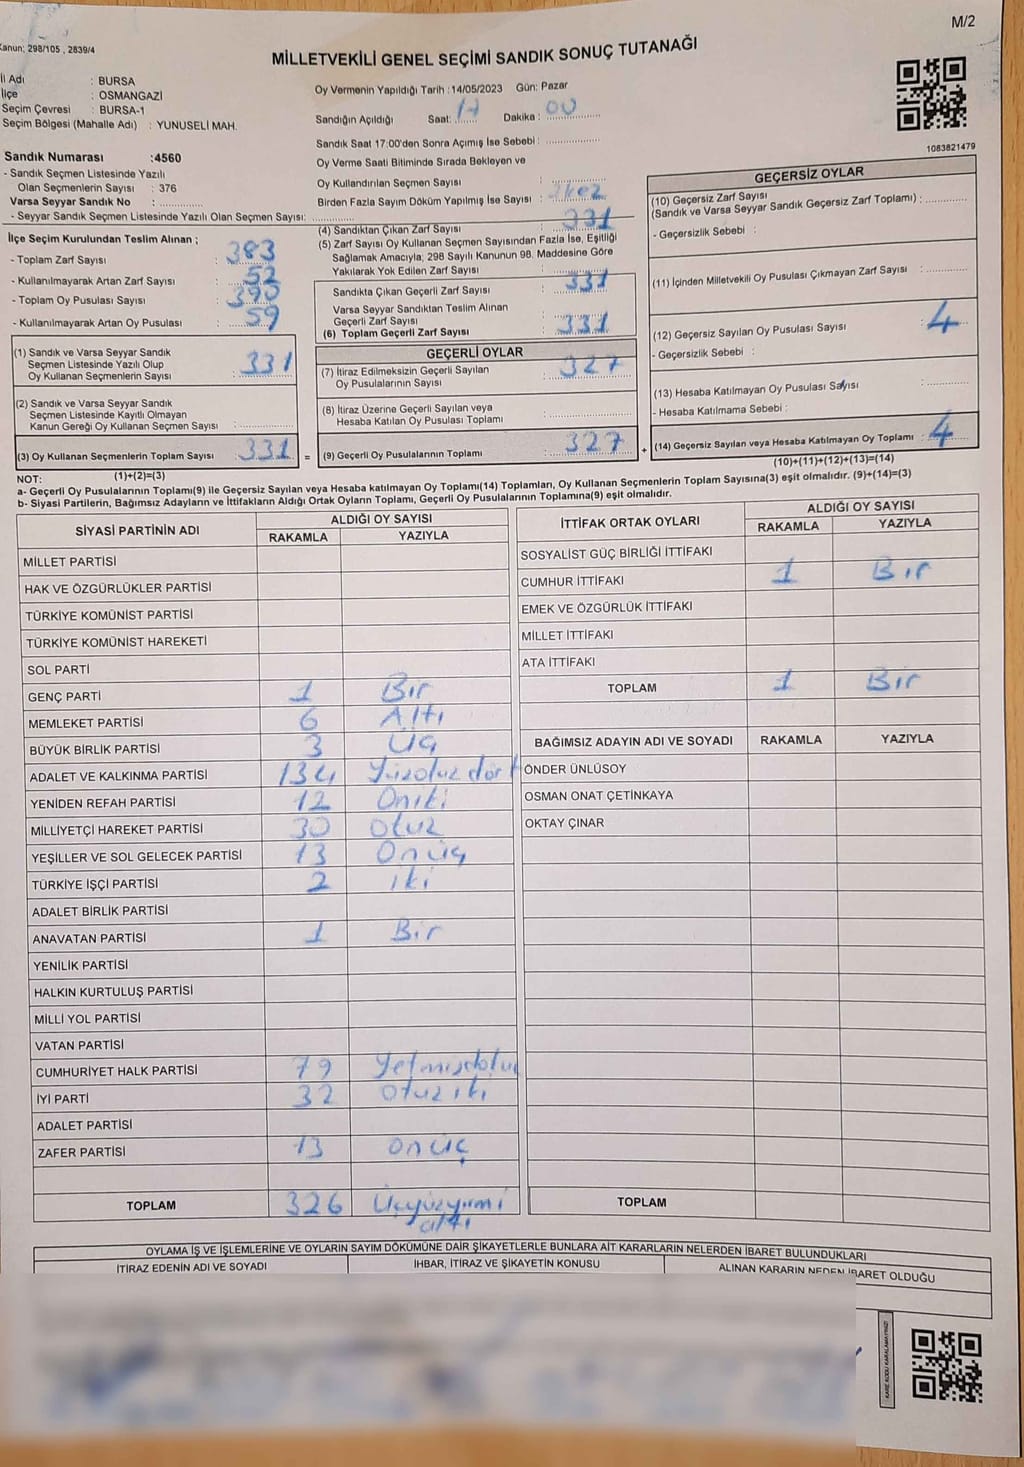 M/2
Kanun; 298/105 , 2839/4
MİLLETVEKİLİ GENEL SEÇİMİ SANDIK SONUÇ TUTANAĞI
İl Adı : BURSA
İlçe : OSMANGAZİ
Seçim Çevresi : BURSA-1
Seçim Bölgesi (Mahalle Adı) : YUNUSELİ MAH.
Oy Vermenin Yapıldığı Tarih :14/05/2023 Gün: Pazar
Sandığın Açıldığı Saat: 17 Dakika : 00
Sandık Saat 17:00'den Sonra Açımış İse Sebebi :
Oy Verme Saati Bitiminde Sırada Bekleyen ve
Oy Kullandırılan Seçmen Sayısı :
Birden Fazla Sayım Döküm Yapılmış İse Sayısı :
1083821479
Sandık Numarası :4560
- Sandık Seçmen Listesinde Yazılı
Olan Seçmenlerin Sayısı : 376
Varsa Seyyar Sandık No :
- Seyyar Sandık Seçmen Listesinde Yazılı Olan Seçmen Sayısı:
İlçe Seçim Kurulundan Teslim Alınan ;
- Toplam Zarf Sayısı : 383
- Kullanılmayarak Artan Zarf Sayısı : 52
- Toplam Oy Pusulası Sayısı : 390
- Kullanılmayarak Artan Oy Pusulası : 59
(1) Sandık ve Varsa Seyyar Sandık
Seçmen Listesinde Yazılı Olup
Oy Kullanan Seçmenlerin Sayısı : 331
(2) Sandık ve Varsa Seyyar Sandık
Seçmen Listesinde Kayıtlı Olmayan
Kanun Gereği Oy Kullanan Seçmen Sayısı :
(3) Oy Kullanan Seçmenlerin Toplam Sayısı : 331 =
(4) Sandıktan Çıkan Zarf Sayısı : 331
(5) Zarf Sayısı Oy Kullanan Seçmen Sayısından Fazla İse, Eşitliği
Sağlamak Amacıyla; 298 Sayılı Kanunun 98. Maddesine Göre
Yakılarak Yok Edilen Zarf Sayısı :
Sandıkta Çıkan Geçerli Zarf Sayısı : 331
Varsa Seyyar Sandıktan Teslim Alınan
Geçerli Zarf Sayısı :
(6) Toplam Geçerli Zarf Sayısı : 331
GEÇERLİ OYLAR
(7) İtiraz Edilmeksizin Geçerli Sayılan
Oy Pusulalarının Sayısı : 327
(8) İtiraz Üzerine Geçerli Sayılan veya
Hesaba Katılan Oy Pusulası Toplamı :
(9) Geçerli Oy Pusulalarının Toplamı : 327 +
GEÇERSİZ OYLAR
(10) Geçersiz Zarf Sayısı
(Sandık ve Varsa Seyyar Sandık Geçersiz Zarf Toplamı) :
- Geçersizlik Sebebi :
(11) İçinden Milletvekili Oy Pusulası Çıkmayan Zarf Sayısı :
(12) Geçersiz Sayılan Oy Pusulası Sayısı : 4
- Geçersizlik Sebebi :
(13) Hesaba Katılmayan Oy Pusulası Sayısı :
- Hesaba Katılmama Sebebi :
(14) Geçersiz Sayılan veya Hesaba Katılmayan Oy Toplamı : 4
NOT: (1)+(2)=(3) (10)+(11)+(12)+(13)=(14)
a- Geçerli Oy Pusulalarının Toplamı(9) ile Geçersiz Sayılan veya Hesaba katılmayan Oy Toplamı(14) Toplamları, Oy Kullanan Seçmenlerin Toplam Sayısına(3) eşit olmalıdır. (9)+(14)=(3)
b- Siyasi Partilerin, Bağımsız Adayların ve İttifakların Aldığı Ortak Oyların Toplamı, Geçerli Oy Pusulalarının Toplamına(9) eşit olmalıdır.
SİYASİ PARTİNİN ADI ALDIĞI OY SAYISI
RAKAMLA YAZIYLA
MİLLET PARTİSİ
HAK VE ÖZGÜRLÜKLER PARTİSİ
TÜRKİYE KOMÜNİST PARTİSİ
TÜRKİYE KOMÜNİST HAREKETİ
SOL PARTİ
GENÇ PARTİ 1 Bir
MEMLEKET PARTİSİ 6 Altı
BÜYÜK BİRLİK PARTİSİ 3 Üç
ADALET VE KALKINMA PARTİSİ 134 Yüzotuzdört
YENİDEN REFAH PARTİSİ 12 Oniki
MİLLİYETÇİ HAREKET PARTİSİ 30 otuz
YEŞİLLER VE SOL GELECEK PARTİSİ 13 Onüç
TÜRKİYE İŞÇİ PARTİSİ 2 iki
ADALET BİRLİK PARTİSİ
ANAVATAN PARTİSİ 1 Bir
YENİLİK PARTİSİ
HALKIN KURTULUŞ PARTİSİ
MİLLİ YOL PARTİSİ
VATAN PARTİSİ
CUMHURİYET HALK PARTİSİ 79
İYİ PARTİ 32 otuziki
ADALET PARTİSİ
ZAFER PARTİSİ 13 onüç
TOPLAM 326 Üçyüzyirmi
altı
İTTİFAK ORTAK OYLARI ALDIĞI OY SAYISI
RAKAMLA YAZIYLA
SOSYALİST GÜÇ BİRLİĞİ İTTİFAKI
CUMHUR İTTİFAKI 1 Bir
EMEK VE ÖZGÜRLÜK İTTİFAKI
MİLLET İTTİFAKI
ATA İTTİFAKI
TOPLAM 1 Bir
BAĞIMSIZ ADAYIN ADI VE SOYADI RAKAMLA YAZIYLA
ÖNDER ÜNLÜSOY
OSMAN ONAT ÇETİNKAYA
OKTAY ÇINAR
TOPLAM
OYLAMA İŞ VE İŞLEMLERİNE VE OYLARIN SAYIM DÖKÜMÜNE DAİR ŞİKAYETLERLE BUNLARA AİT KARARLARIN NELERDEN İBARET BULUNDUKLARI
İTİRAZ EDENİN ADI VE SOYADI İHBAR, İTİRAZ VE ŞİKAYETİN KONUSU ALINAN KARARIN NEDEN İBARET OLDUĞU
KARE KODU KARALAMAYINIZ!